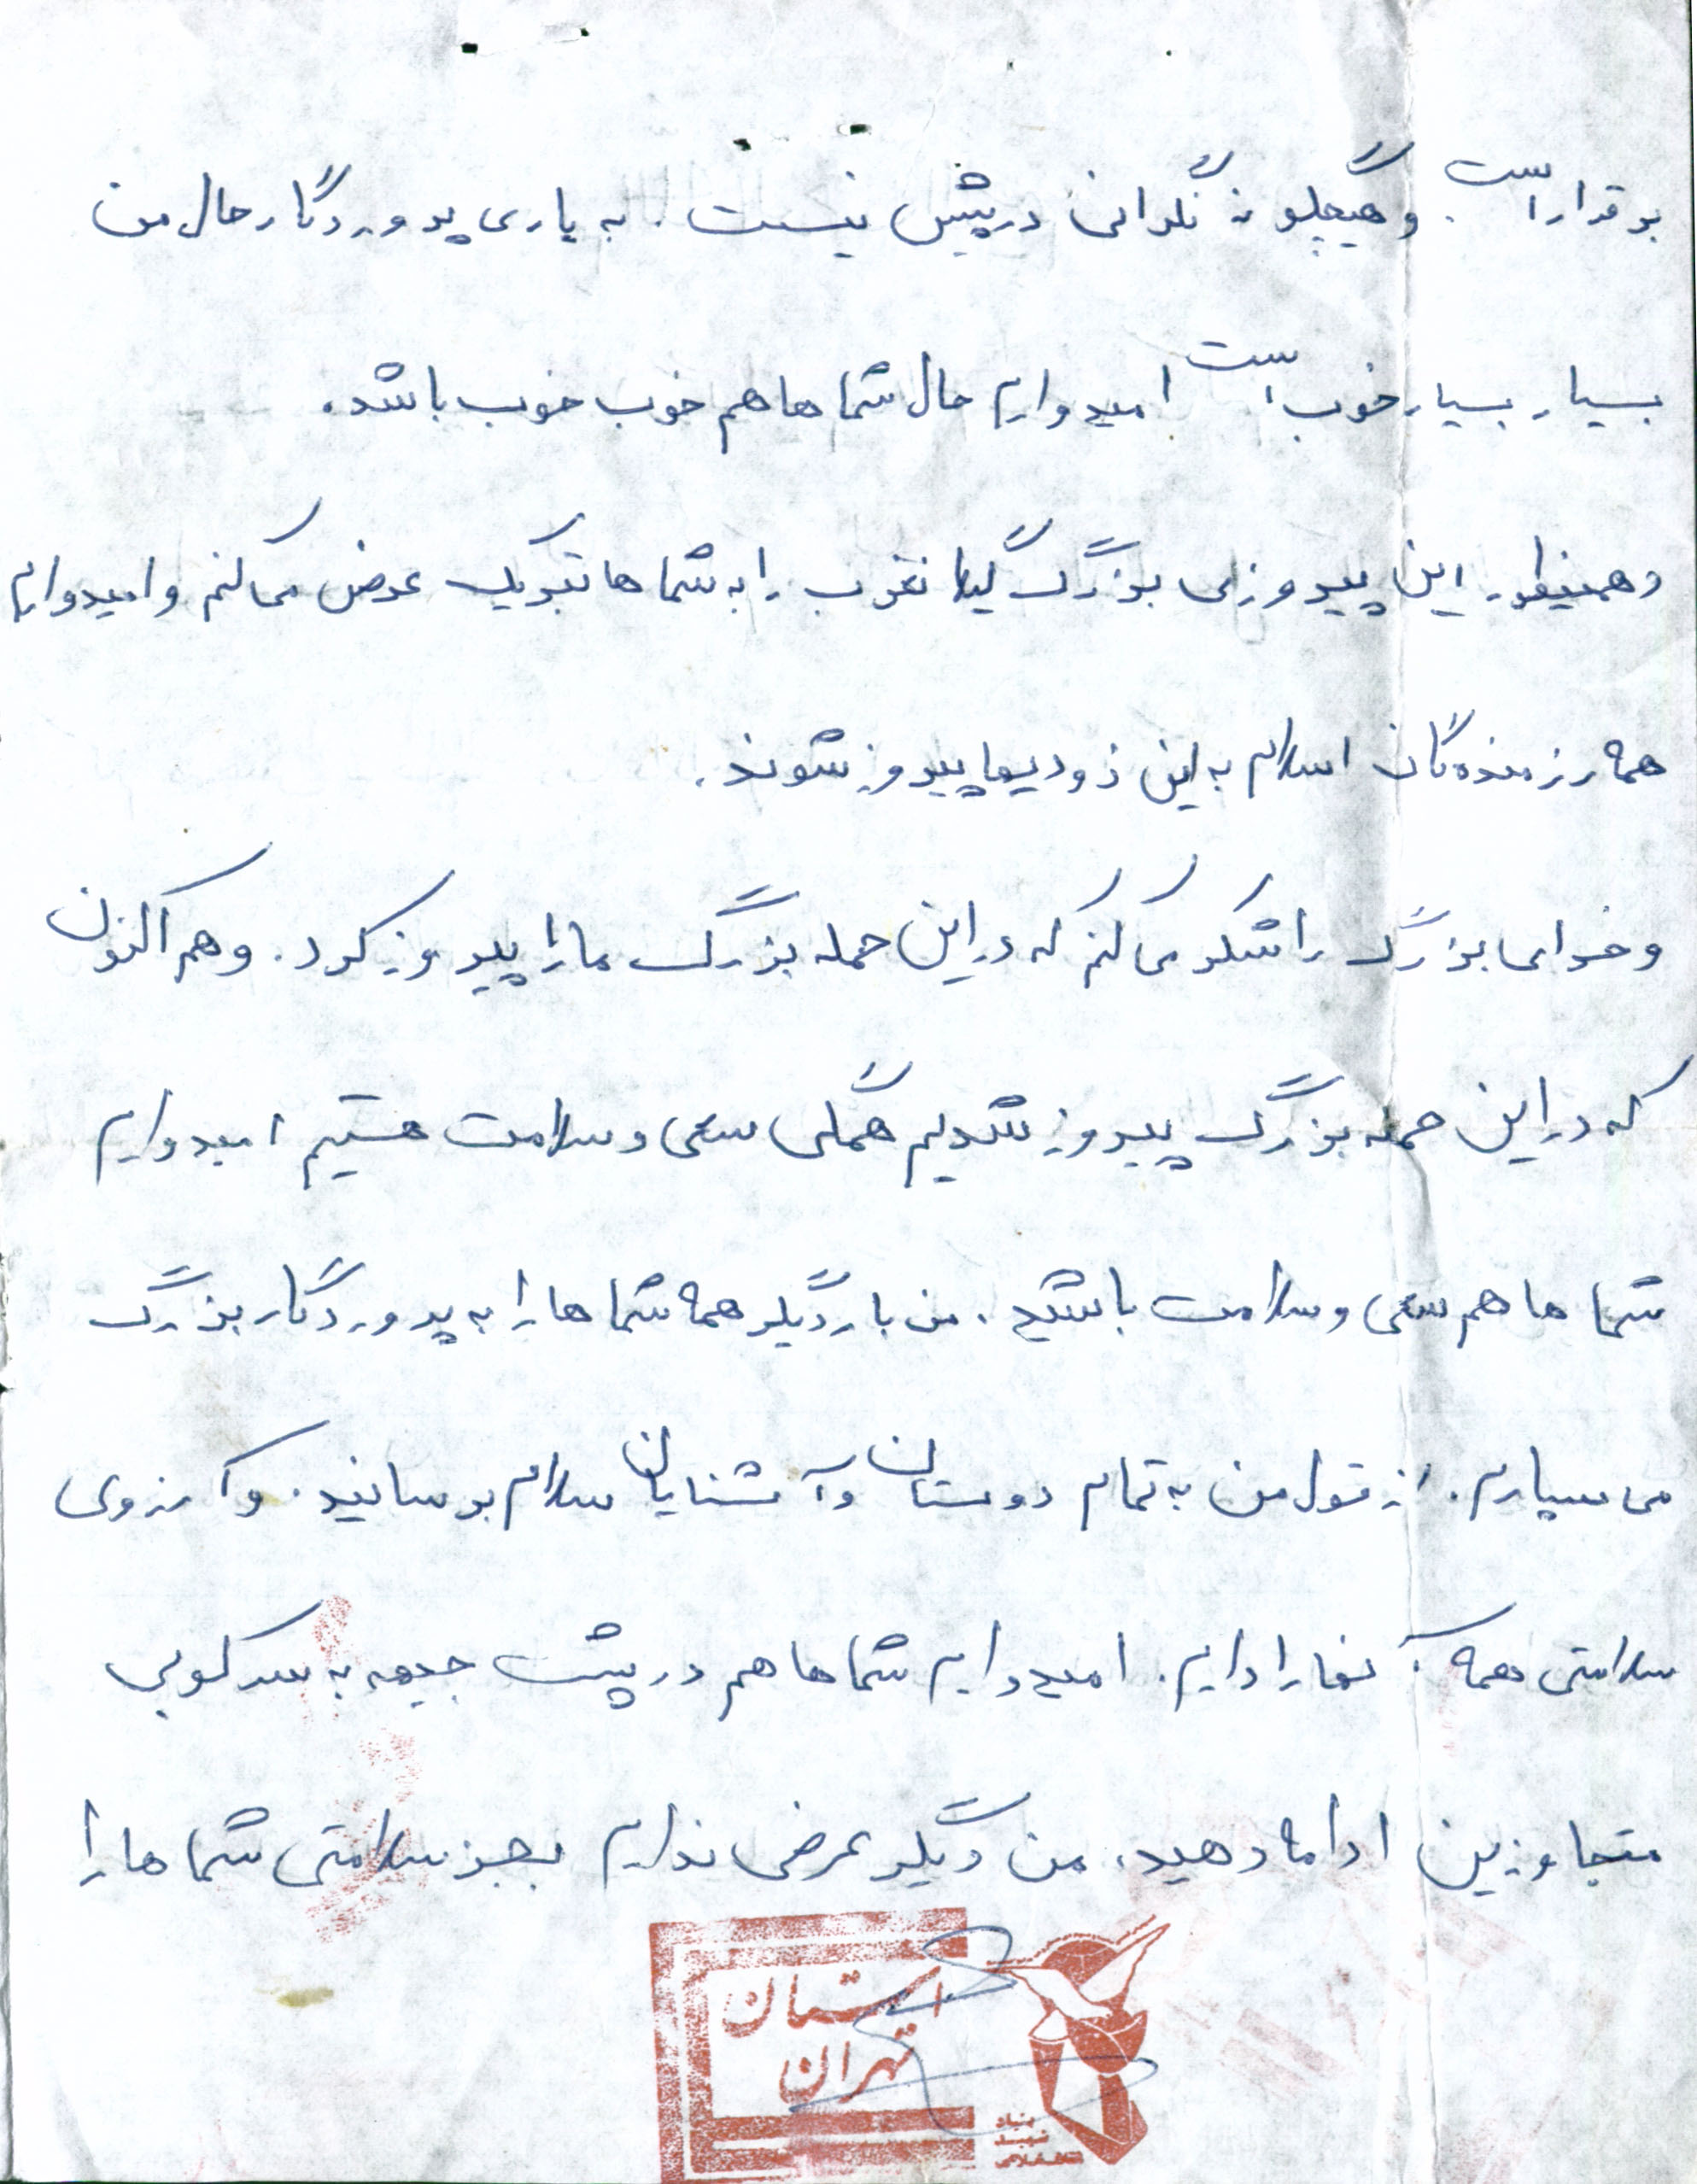 برقرار است. و هیچگونه نگرانی در پیش نیست. به یاری پروردگار حال من
بسیار بسیار خوب است امیدوارم حال شما ها هم خوب خوب باشد.
و همینطور این پیروزی بزرگ گیلانغرب را به شما ها تبریک عرض می کنم و امیدوارم
همه رزمنده گان اسلام به این زودیها پیروز شوند.
و خدای بزرگ را شکر می کنم که در این حمله بزرگ ما را پیروز کرد. و هم اکنون
که در این حمله بزرگ پیروز شدیم همگی سحی و سلامت هستیم امیدوارم
شما ها هم سحی و سلامت باشید. من بار دیگر همه شما ها را به پروردگار بزرگ
می سپارم. از قول من به تمام دوستان و آشنایان سلام برسانید. و آرزوی
سلامتی همه آنها را دارم. امیدوارم شما ها هم در پشت جبهه به سرکوبی
متجاوزین ادامه دهید. من دیگر عرضی ندارم بجز سلامتی شما ها را
استان
تهران
بنیاد
شهید
انقلاب اسلامی